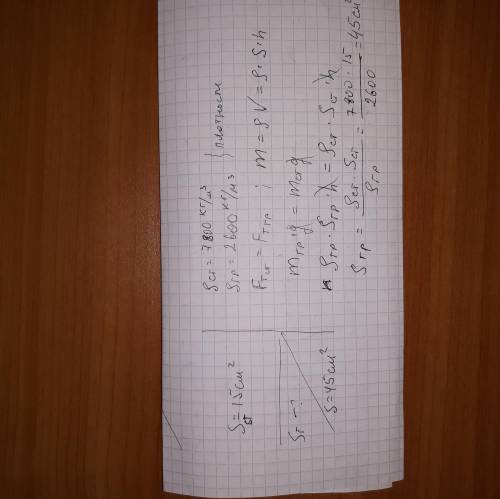 S_ст = 15 см²
S_г — ?
S = 45 см²
ρ_ст = 7800 кг/м³
ρ_гр = 2600 кг/м³ } плотности
F_т ст = F_т гр ; m = ρV = ρ·S·h
m_гр·g = m_ст g
ρ_гр · S_гр · h = ρ_ст · S_ст · h
S_гр = ρ_ст · S_ст / ρ_гр = 7800 · 15 / 2600 = 45 см²